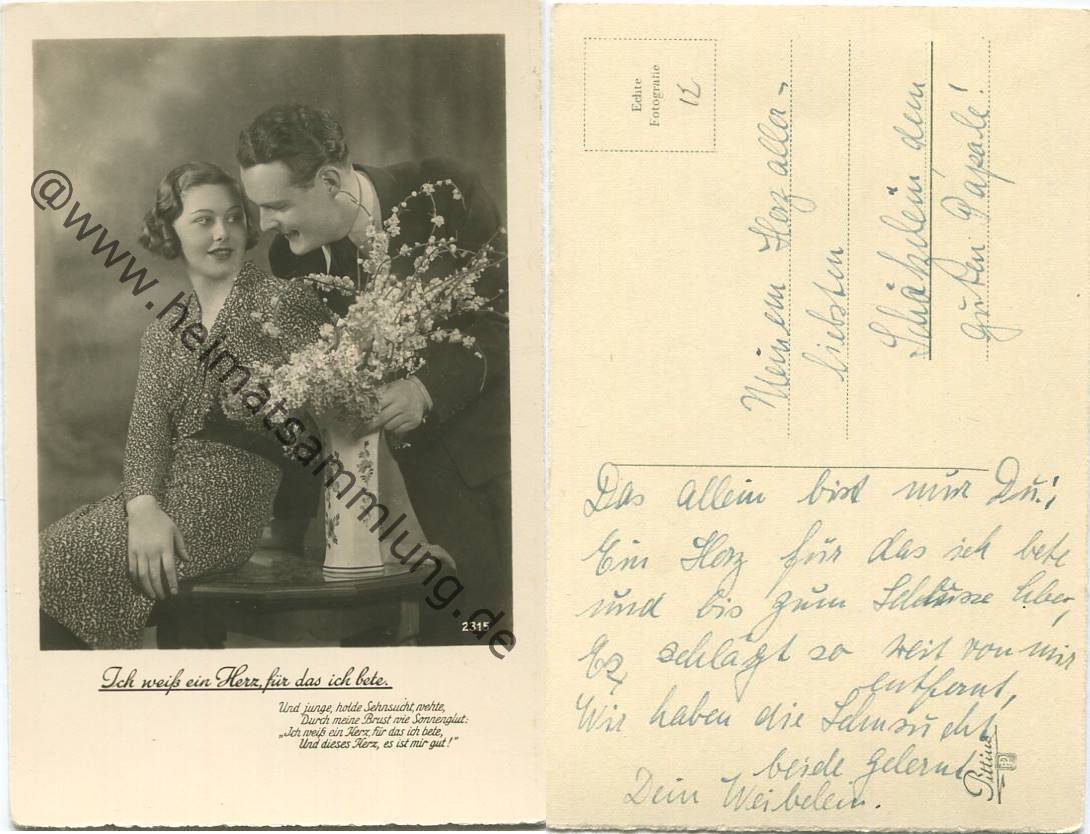 @www.heimatsammlung.de
2315
Ich weiß ein Herz, für das ich bete.
Und junge, holde Sehnsucht, wehte,
Durch meine Brust wie Sonnenglut:
„Ich weiß ein Herz, für das ich bete,
Und dieses Herz, es ist mir gut!"
Echte
Fotografie
12
Meinem Herz aller-
liebsten
Schätzlein, dem
guten Papale!
Das allein bist nur Du!
Ein Herz für das ich bete
und bis zum Schlusse lebe,
Es schlägt so weit von mir
entfernt,
Wir haben die Sehnsucht
beide gelernt,
Dein Weibelein.
Pittius